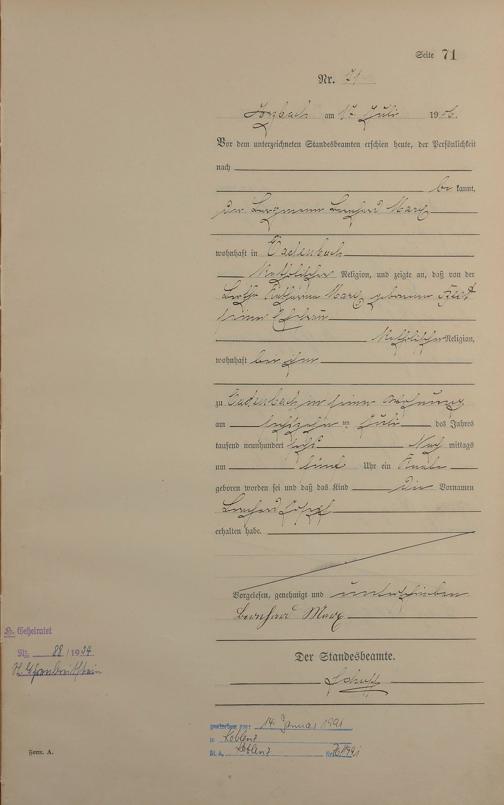 Seite 71
Nr. 71
Horbach am 17. Juli 1906.
Vor dem unterzeichneten Standesbeamten erschien heute, der Persönlichkeit
nach
be kannt,
der Bergmann Bernhard Marx
wohnhaft in Gadenbach
katholischer Religion, und zeigte an, daß von der
Bertha Katharina Marx geborenen
seiner Ehefrau
katholischer Religion,
wohnhaft bei ihm
zu Gadenbach in seiner Wohnung
am sechszehnten Juli des Jahres
tausend neunhundert sechs Nach mittags
um fünf Uhr ein Knabe
geboren worden sei und daß das Kind die Vornamen
Bernhard Josef
erhalten habe.
Vorgelesen, genehmigt und unterschrieben
Bernhard Marx
Der Standesbeamte.
H. Geheiratet
Nr. 88/1934
St. A. Ehrenbreitstein
gestorben am: 14. Januar 1991
in Koblenz
St. A. Koblenz
Form. A.